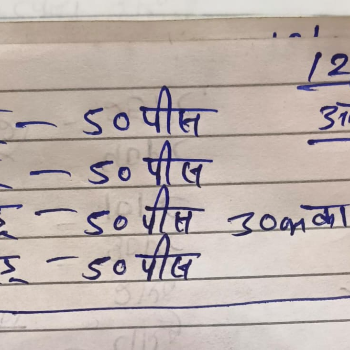 12
— 50 पीस
— 50 पीस
— 50 पीस 30 का
— 50 पीस